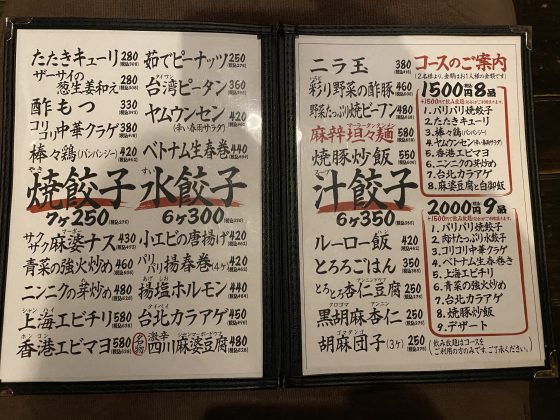 たたきキューリ 280
ザーサイの葱生姜和え 280
酢もつ 330
コリコリ中華クラゲ 380
棒々鶏(バンバンジー) 420
茹でピーナッツ 250
台湾ピータン 360
ヤムウンセン 400
(辛い春雨サラダ)
ベトナム生春巻 440
焼餃子
7ヶ250
水餃子
6ヶ300
サクサク麻婆ナス 430
青菜の強火炒め 460
ニンニクの芽炒め 480
上海エビチリ 580
香港エビマヨ 580
小エビの唐揚げ 420
パリパリ揚春巻(4ヶ) 420
揚塩ホルモン 440
台北カラアゲ 450
名物 激辛 四川麻婆豆腐 480
ニラ玉 380
彩り野菜の酢豚 460
野菜たっぷり焼ビーフン 480
麻辣坦々麺 580
焼豚炒飯 550
汁餃子
6ヶ350
ルーロー飯 420
とろろごはん 350
とろとろ杏仁豆腐 250
黒胡麻杏仁 250
胡麻団子(3ヶ) 250
コースのご案内
(2名様より、金額はお1人様の金額です)
1500円8品
+1500円で飲み放題(120分)がご利用頂けます。
1.パリパリ焼餃子
2.たたきキューリ
3.棒々鶏(バンバンジー)
4.ヤムウンセン(辛い春雨サラダ)
5.香港エビマヨ
6.ニンニクの芽炒め
7.台北カラアゲ
8.麻婆豆腐と白御飯
2000円9品
+1500円で飲み放題(120分)がご利用頂けます。
1.パリパリ焼餃子
2.肉汁たっぷり水餃子
3.コリコリ中華クラゲ
4.ベトナム生春巻き
5.上海エビチリ
6.青菜の強火炒め
7.台北カラアゲ
8.焼豚炒飯
9.デザート
(飲み放題はコースをご利用の方のみです。ご了承ください。)